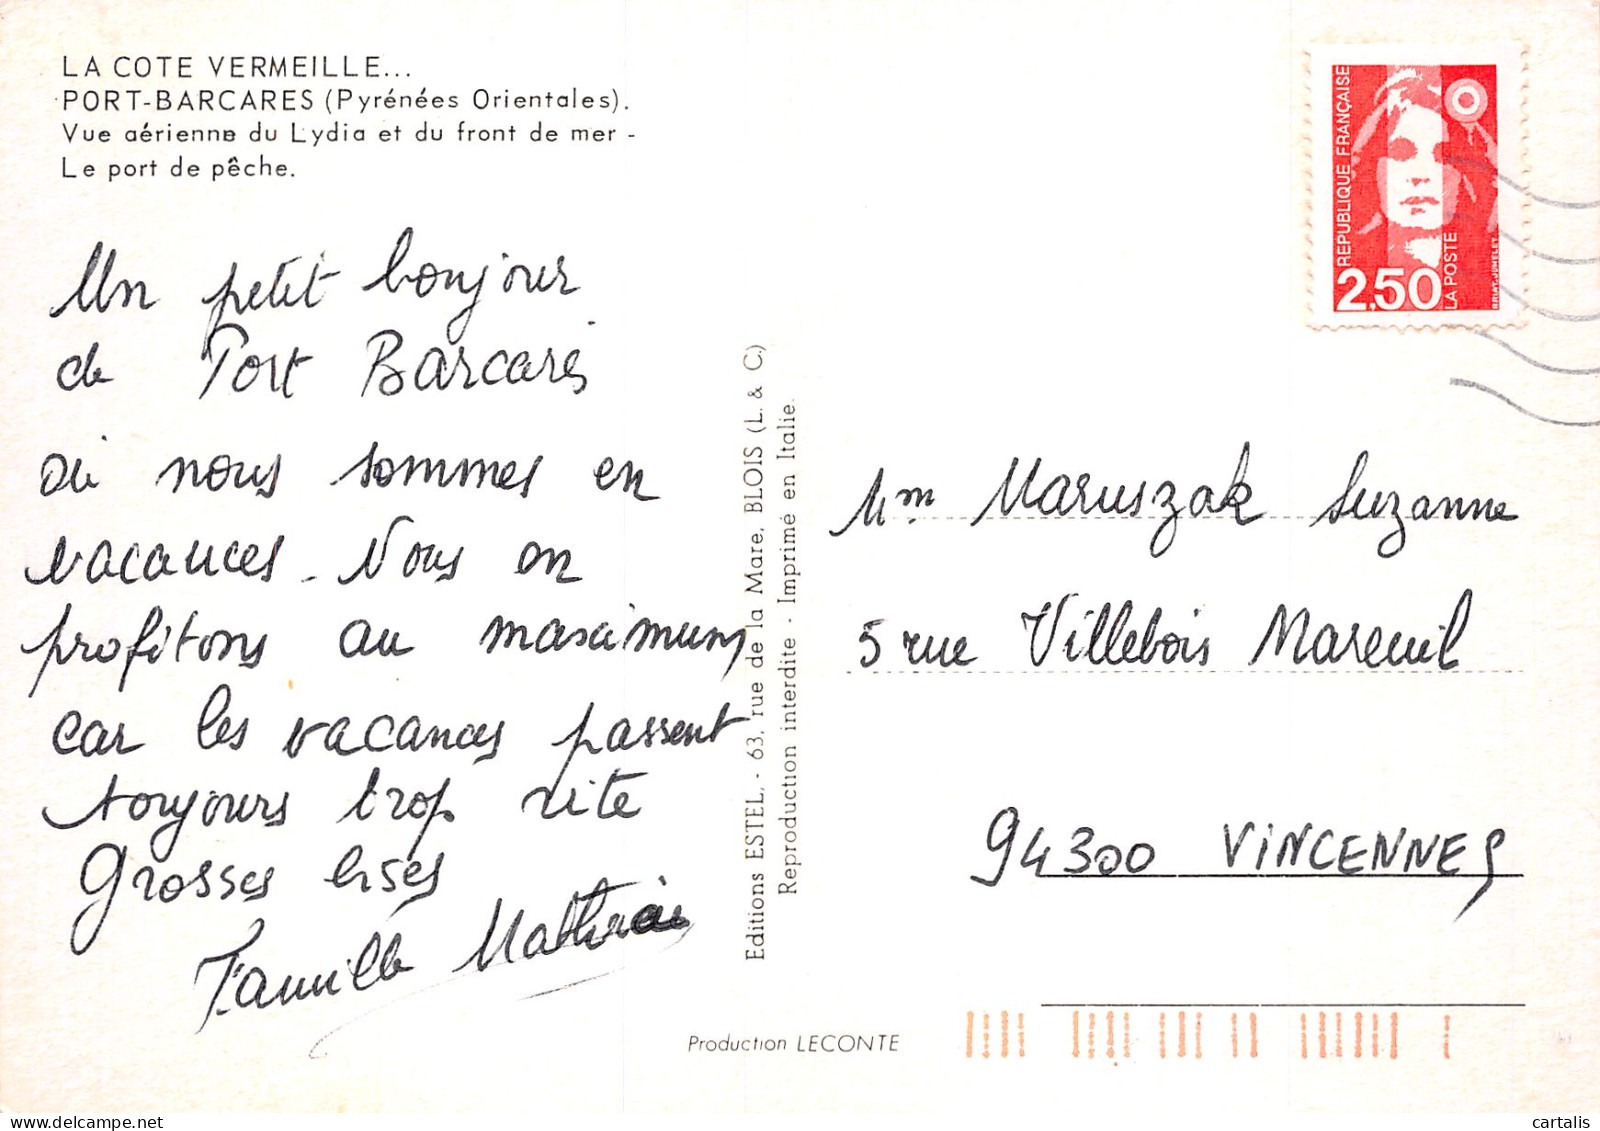 LA COTE VERMEILLE...
PORT-BARCARES (Pyrénées Orientales).
Vue aérienne du Lydia et du front de mer -
Le port de pêche.
Un petit bonjour
de Port Barcarès
où nous sommes en
vacances. Nous en
profitons au maximum
car les vacances passent
toujours trop vite
Grosses bises
Famille
Editions ESTEL. - 63, rue de la Mare, BLOIS (L. & C.)
Reproduction interdite - Imprimé en Italie.
Production LECONTE
REPUBLIQUE FRANÇAISE
2,50
LA POSTE
BRIAT-JUMELET
Mme Maruszak Suzanne
5 rue Villebois Mareuil
94300 VINCENNES
cartalis
www.delcampe.net